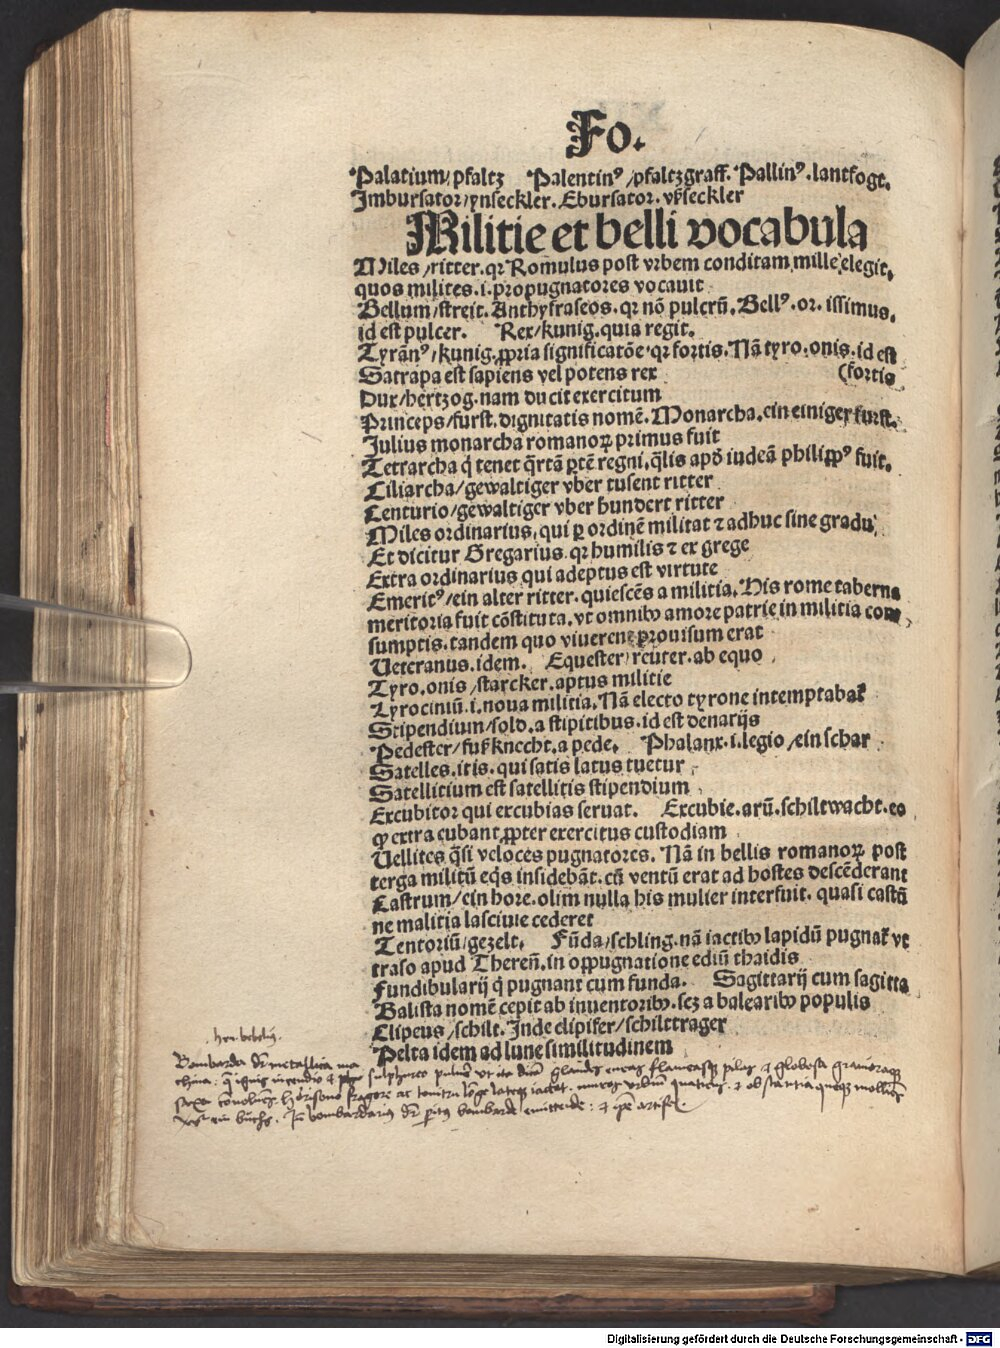 Fo.
Palatium/pfaltz Palentinꝰ/pfaltzgraff. Pallinꝰ.lantfogt.
Imbursator/ynseckler. Ebursator.vßseckler
Militie et belli vocabula
Miles/ritter.qꝛ Romulus post vrbem conditam mille elegit,
quos milites.i.propugnatores vocauit
Bellum/streit. Anthyfraseos.qꝛ nō pulcrū. Bellꝰ.or.issimus.
id est pulcer. Rex/kunig.quia regit.
Tyrānꝰ/kunig.ꝓpria significatōe.qꝛ fortis. Nā tyro.onis.id est
Satrapa est sapiens vel potens rex (fortis
Dux/hertzog.nam ducit exercitum
Princeps/furst.dignitatis nomē. Monarcha.ein einiger furst.
Julius monarcha romanoꝝ primus fuit
Tetrarcha q̇ tenet q̄rtā ꝑtē regni.q̄lis apd̓ iudeā philippꝰ fuit.
Ciliarcha/gewaltiger vber tusent ritter
Centurio/gewaltiger vber hundert ritter
Miles ordinarius, qui ꝑ ordinē militat ⁊ adhuc sine gradu.
Et dicitur Gregarius.qꝛ humilis ⁊ ex grege
Extra ordinarius qui adeptus est virtute
Emeritꝰ/ein alter ritter.quiescēs a militia. His rome taberna
meritoria fuit cōstituta.vt omnibꝰ amore patrie in militia con
sumptis.tandem quo viuerent prouisum erat
Ueteranus.idem. Equester/reuter.ab equo
Tyro.onis/starcker.aptus militie
Tyrociniū.i.noua militia. Nā electo tyrone intemptabat̄
Stipendium/sold.a stipitibus.id est denarijs
Pedester/fußknecht.a pede. Phalanx.i.legio/ein schar
Satelles.itis.qui satis latus tuetur
Satellitium est satellitis stipendium
Excubitor qui excubias seruat. Excubie.arū.schiltwacht.eo
ꝙ extra cubant ꝓpter exercitus custodiam
Uellites q̄si veloces pugnatores. Nā in bellis romanoꝝ post
terga militū eq̓s insidebāt.cū ventū erat ad hostes descēderant
Castrum/ein hore.olim nulla his mulier interfuit.quasi castū
ne malitia lasciuie cederet
Tentoriū/gezelt. Fūda/schling.nā iactibꝰ lapidū pugnat̄ vt
traso apud Thereñ.in oppugnatione ediū thaidis
Fundibularij q̇ pugnant cum funda. Sagittarij cum sagitta
Balista nomē cepit ab inuentoribꝰ.scz a balearibꝰ populis
Clipeus/schilt. Inde clipifer/schilttrager
Pelta idem ad lune similitudinem
Bombarda dr̄ metallica ma
china
Digitalisierung gefördert durch die Deutsche Forschungsgemeinschaft - DFG